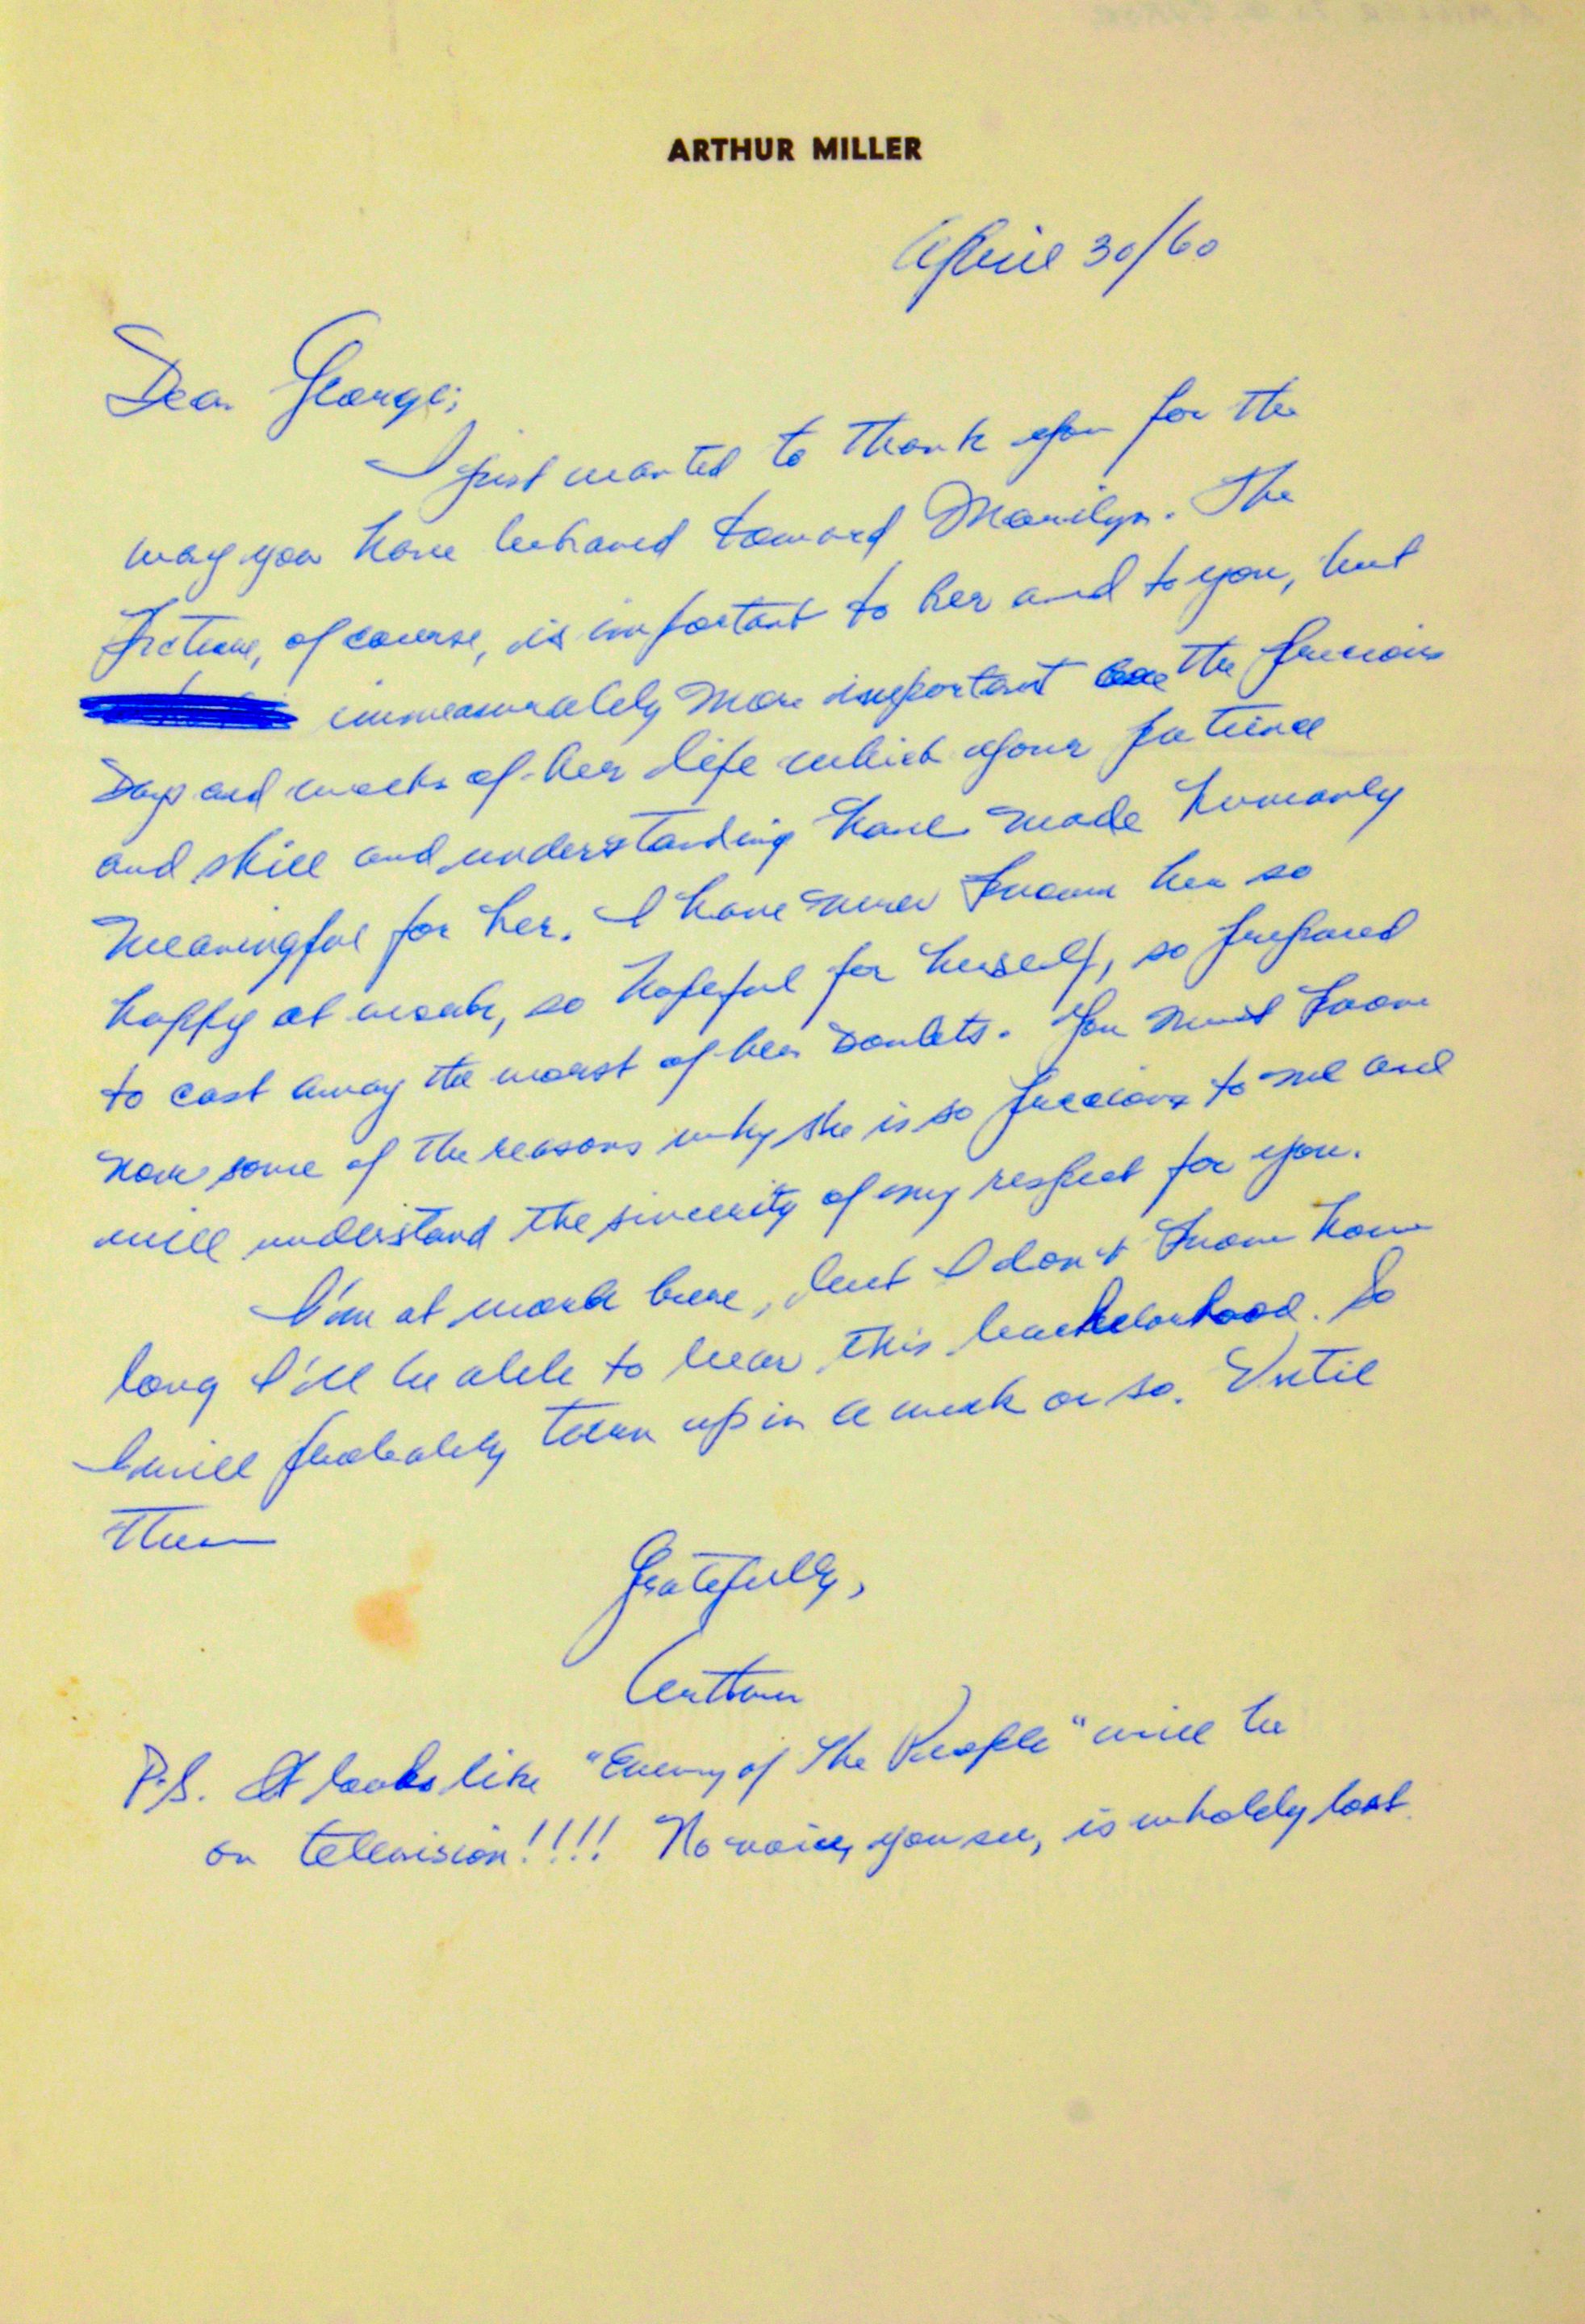 ARTHUR MILLER
April 30/60
Dear George;
I just wanted to thank you for the
way you have behaved toward Marilyn. The
picture, of course, is important to her and to you, but
immeasurably more important are the precious
days and weeks of her life which your patience
and skill and understanding have made humanly
meaningful for her. I have never known her so
happy at work, so hopeful for herself, so prepared
to cast away the worst of her doubts. You must know
now some of the reasons why she is so precious to me and
will understand the sincerity of my respect for you.
I'm at work here, but I don't know how
long I'll be able to bear this bachelorhood. So
I will probably turn up in a week or so. Until
then
Gratefully,
Arthur
P.S. It looks like "Enemy of The People" will be
on television!!!! No voice, you see, is wholely lost.